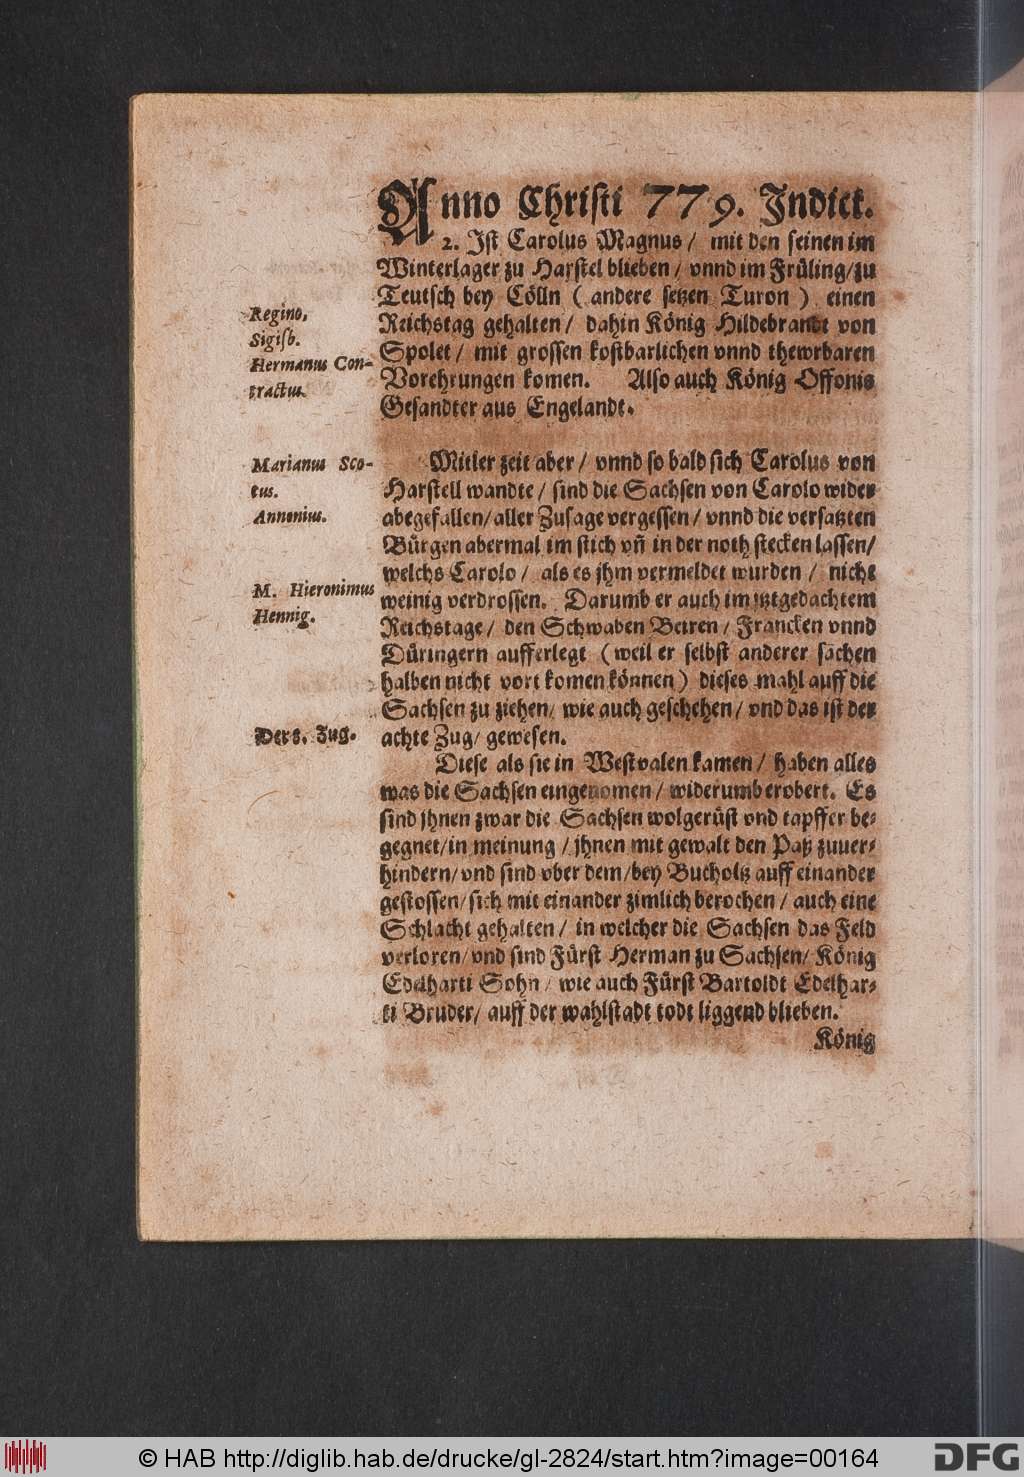 Anno Christi 779. Indict.
2. Ist Carolus Magnus / mit den seinen im
Winterlager zu Harstel blieben / vnnd im Früling/zu
Teutsch bey Cölln ( andere setzen Turon ) einen
Reichstag gehalten / dahin König Hildebrandt von
Spolet / mit grossen kostbarlichen vnnd thewrbaren
Vorehrungen komen. Also auch König Offonis
Gesandter aus Engelandt.
Regino,
Sigisb.
Hermanus Con-
tractus.
Mitler zeit aber / vnnd so bald sich Carolus von
Harstell wandte / sind die Sachsen von Carolo wider
abegefallen/aller Zusage vergessen / vnnd die versatzten
Bürgen abermal im stich vñ in der noth stecken lassen/
welchs Carolo / als es jhm vermeldet wurden / nicht
weinig verdrossen. Darumb er auch im itztgedachtem
Reichstage / den Schwaben Beiren / Francken vnnd
Düringern aufferlegt ( weil er selbst anderer sachen
halben nicht vort komen können ) dieses mahl auff die
Sachsen zu ziehen/ wie auch geschehen / vnd das ist der
achte Zug/ gewesen.
Marianus Sco-
tus.
Annonius.
M. Hieronimus
Hennig.
Der 8. Zug.
Diese als sie in Westvalen kamen / haben alles
was die Sachsen eingenomen / widerumb erobert. Es
sind jhnen zwar die Sachsen wolgerüst vnd tapffer be-
gegnet/in meinung / jhnen mit gewalt den Paß zuuer-
hindern/ vnd sind vber dem/bey Bucholtz auff einander
gestossen/sich mit einander zimlich berochen / auch eine
Schlacht gehalten / in welcher die Sachsen das Feld
verloren/ vnd sind Fürst Herman zu Sachsen/ König
Edelharti Sohn / wie auch Fürst Bartoldt Edelhar-
ti Bruder/ auff der wahlstadt todt liggend blieben.
König
© HAB http://diglib.hab.de/drucke/gl-2824/start.htm?image=00164
DFG